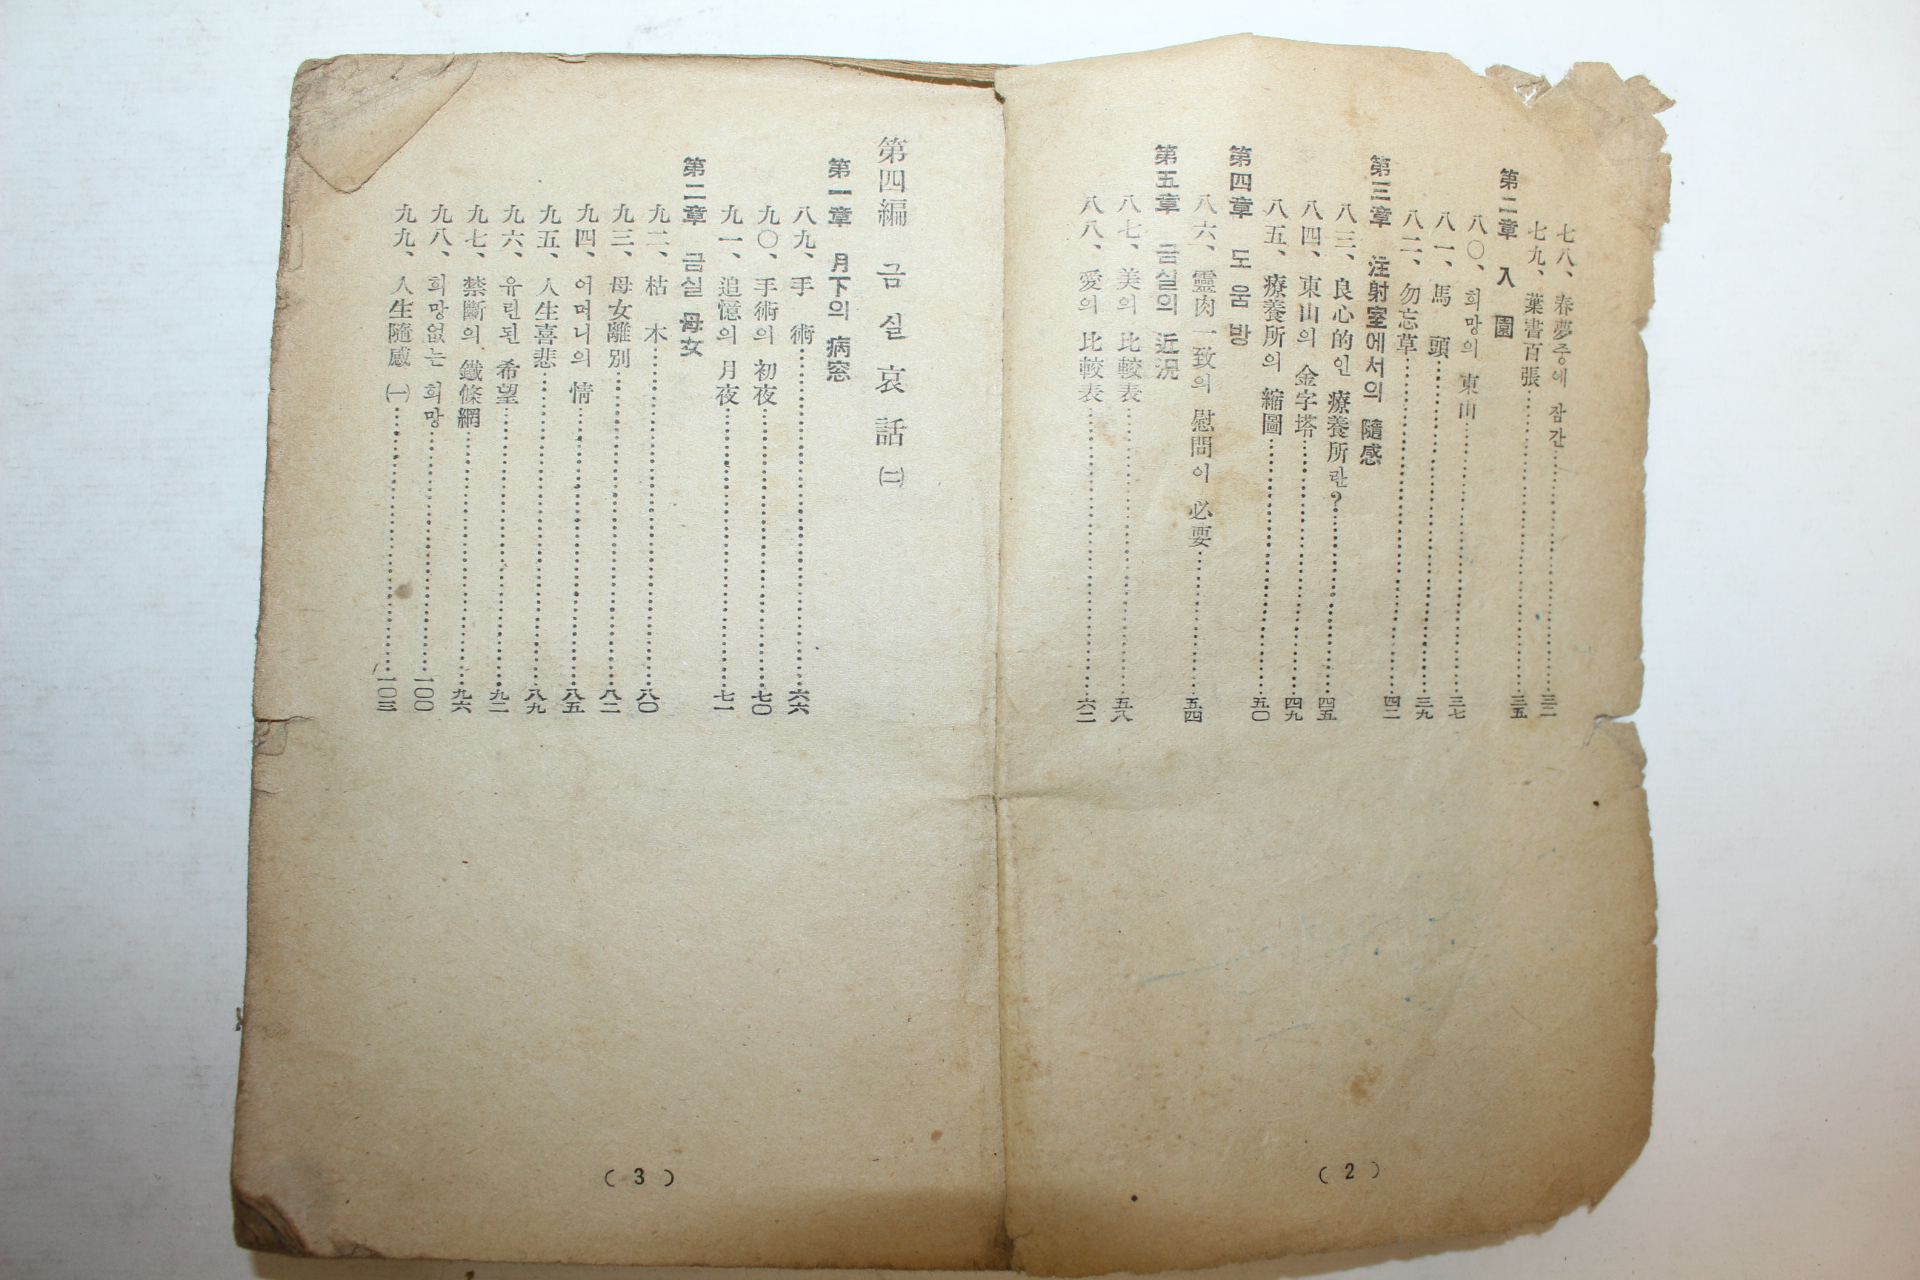 七八、春夢중에 잠간……三二
七九、葉書百張……三五
第二章 入園
八〇、희망의 東山……三七
八一、馬頭……三九
八二、勿忘草……四二
第三章 注射室에서의 隨感
八三、良心的인 療養所란?……四五
八四、東山의 金字塔……四九
八五、療養所의 縮圖……五〇
第四章 도움방
八六、靈肉一致의 慰問이 必要……五四
第五章 금실의 近況
八七、美의 比較表……五八
八八、愛의 比較表……六二
( 2 )
第四編 금실哀話 ㈡
第一章 月下의 病窓
八九、手術……六六
九〇、手術의 初夜……七〇
九一、追憶의 月夜……七一
第二章 금실 母女
九二、枯木……八〇
九三、母女離別……八二
九四、어머니의 情……八五
九五、人生喜悲……八九
九六、유린된 希望……九二
九七、禁斷의、鐵條網……九六
九八、희망없는 희망……一〇〇
九九、人生隨感 ㈠……一〇三
( 3 )